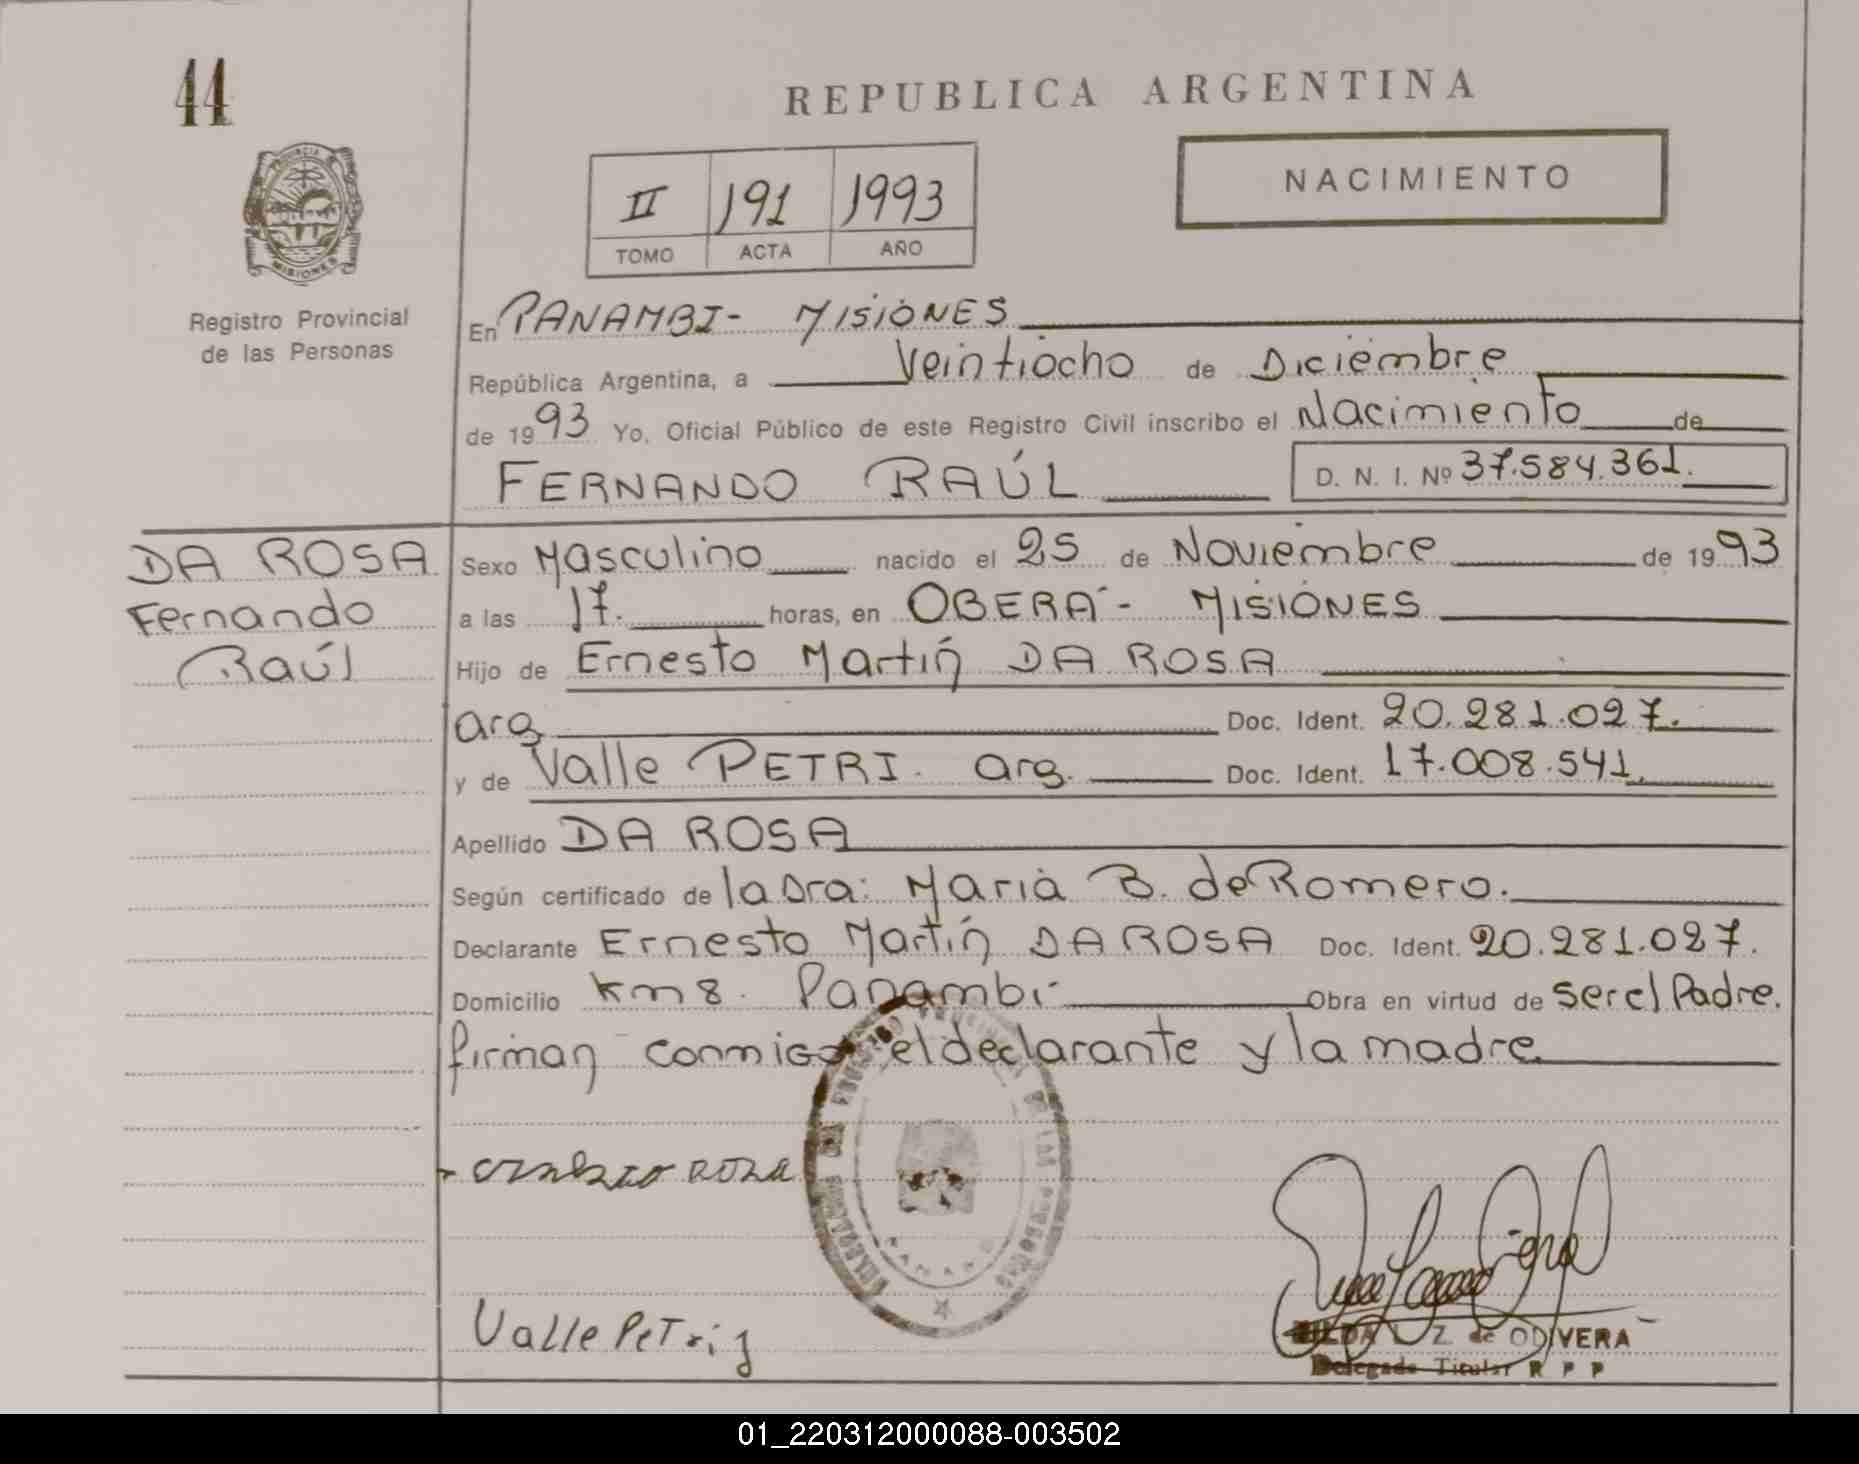 44
REPUBLICA ARGENTINA
NACIMIENTO
II 191 1993
TOMO ACTA AÑO
PROVINCIA DE MISIONES
Registro Provincial
de las Personas
En PANAMBI - MISIONES
República Argentina, a Veintiocho de Diciembre
de 1993 Yo, Oficial Público de este Registro Civil inscribo el Nacimiento de
FERNANDO RAÚL D. N. I. Nº 37.584.361.
DA ROSA
Fernando
Raúl
Sexo Masculino nacido el 25 de Noviembre de 1993
a las 17. horas, en OBERÁ - MISIONES
Hijo de Ernesto Martín DA ROSA
arg Doc. Ident. 20.281.027.
y de Valle PETRI. arg. Doc. Ident. 17.008.541.
Apellido DA ROSA
Según certificado de la Dra: Maria B. de Romero.
Declarante Ernesto Martín DA ROSA Doc. Ident. 20.281.027.
Domicilio km 8. Panambi Obra en virtud de ser el Padre.
firman conmigo el declarante y la madre.
ernesto rosa
PANAMBI
Valle Petri
Z. de OLIVERA
Delegada Titular R P P
01_220312000088-003502